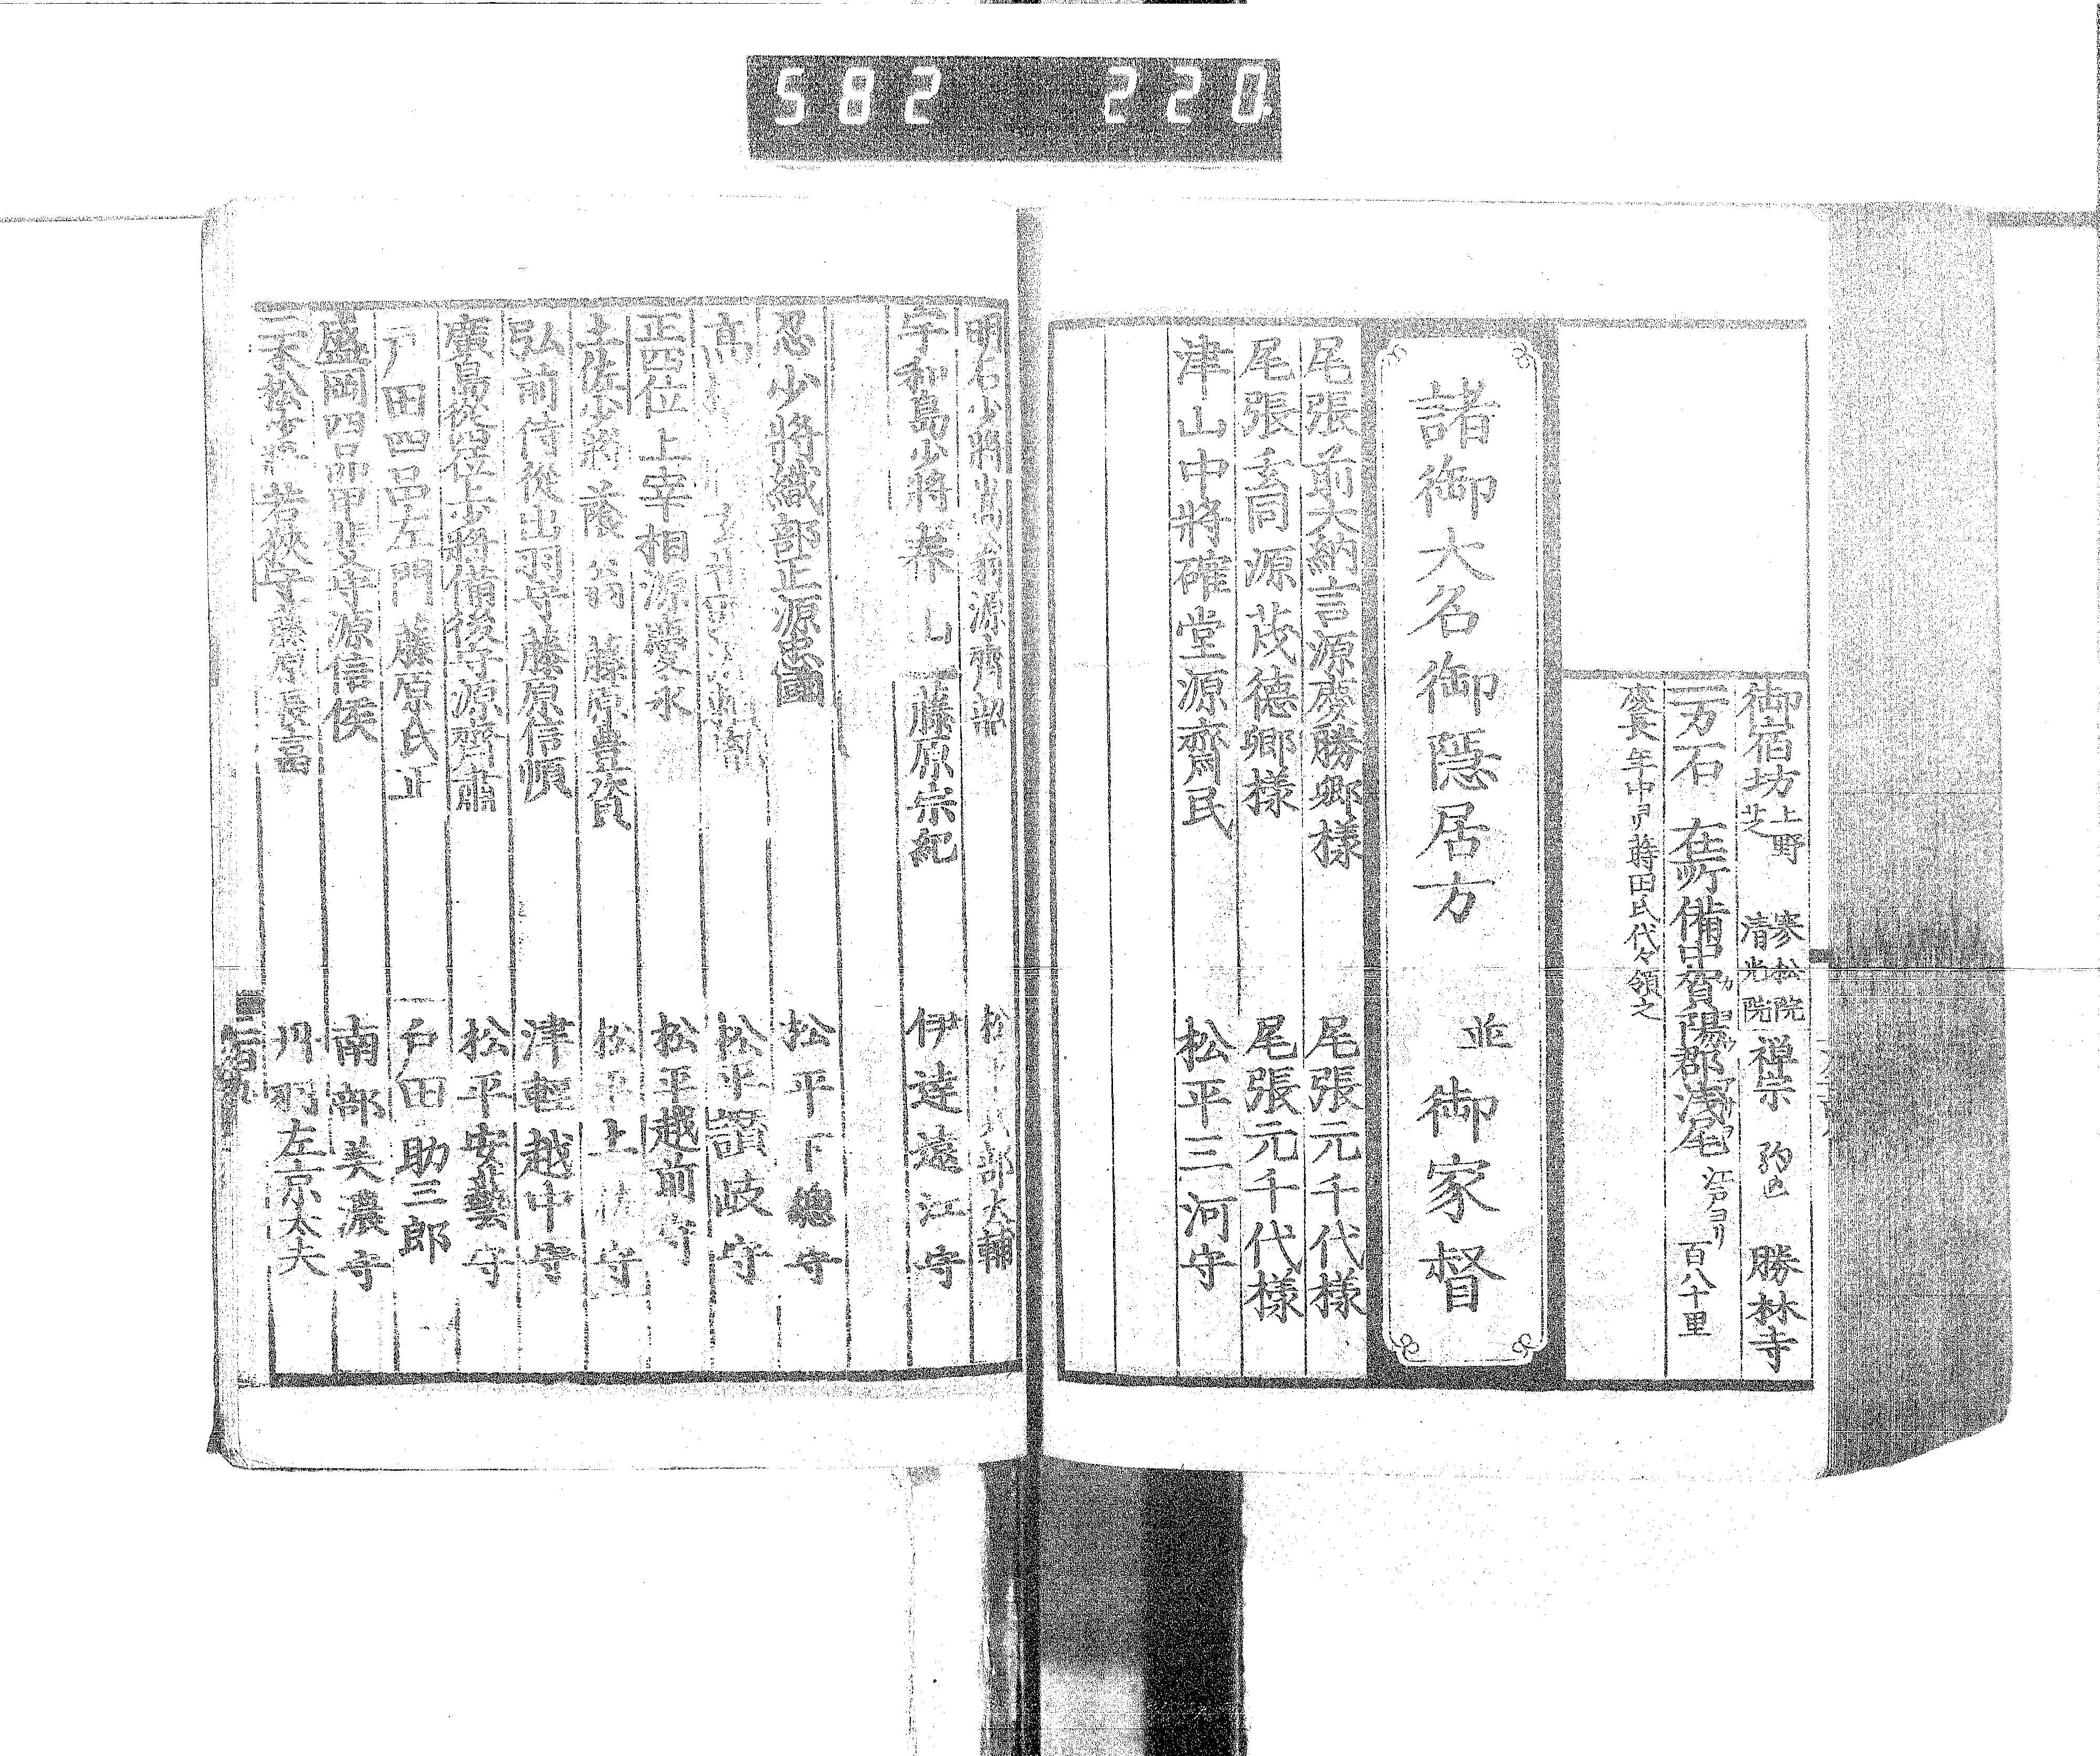 582 220
御宿坊 上野 寒松院
芝 清光院
禅宗 駒込 勝林寺
一万石 在所備中賀陽郡浅尾 江戸ヨリ 百八十里
慶長年中ヨリ蒔田氏代々領之
諸御大名御隠居方 並 御家督
尾張前大納言源慶勝卿様 尾張元千代様
尾張玄同源茂徳卿様 尾張元千代様
津山中将確堂源齊民 松平三河守
明石少将 翁源齊韶 松 式部大輔
宇和島少将春山藤原宗紀 伊達遠江守
忍少将織部正源忠國 松平下總守
高 松平讃岐守
正四位上宰相源慶永 松平越前守
土佐少将 翁 藤原豊資 松平土佐守
弘前侍従出羽守藤原信順 津輕越中守
廣島従四位少将備後守源齊肅 松平安藝守
戸田四品左門 藤原氏正 戸田助三郎
盛岡四品甲斐守源信侯 南部美濃守
二本松少将 若狭守藤原長富 丹羽左京太夫